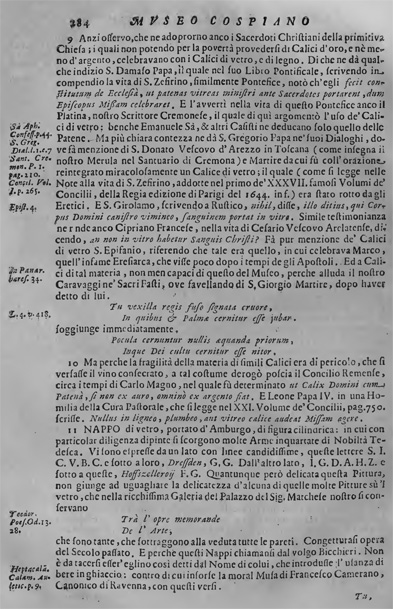 284 MVSEO COSPIANO
9 Anzi osservo, che ne adoprorno anco i Sacerdoti Christiani della primitiva
Chiesa; i quali non potendo per la povertà provedersi di Calici d'oro, e nè me-
no d'argento, celebravano con i Calici di vetro, e di legno. Di che ne dà qual-
che indizio S. Damaso Papa, il quale nel suo Libro Pontificale, scrivendo in
compendio la vita di S. Zefirino, similmente Pontefice, notò ch'egli fecit con-
stitutum de Ecclesâ, ut patenas vitreas ministri ante Sacerdotes portarent, dum
Episcopus Missam celebraret. E l'avvertì nella vita di questo Pontefice anco il
Platina, nostro Scrittore Cremonese, il quale di quì argomentò l'uso de' Cali-
ci di vetro: benche Emanuele Sà, & altri Casisti ne deducano solo quello delle
Sà Aph.
Confess. p.44.
Patene. Ma più chiara contezza ne dà S. Gregorio Papa ne' suoi Dialoghi, do-
S. Greg.
Dial. l.1.c.7
ve fà menzione di S. Donato Vescovo d'Arezzo in Toscana (come insegna il
Sant. Cre-
mon. P. 1.
nostro Merula nel Santuario di Cremona) e Martire da cui fù coll'orazione
pag. 210.
reintegrato miracolosamente un Calice di vetro; il quale (come si legge nelle
Note alla vita di S. Zefirino, addotte nel primo de' XXXVII. famosi Volumi de'
Concil. Vol.
I. p. 265.
Concilii, della Regia edizione di Parigi del 1644. in f.) era stato rotto dagli
Epist. 4.
Eretici. E S. Girolamo, scrivendo a Rustico, nihil, disse, illo ditius, qui Cor-
pus Domini canistro vimineo, sanguinem portat in vitro. Simile testimonianza
ne rende anco Cipriano Francese, nella vita di Cesario Vescovo Arelatense, di-
cendo, an non in vitro habetur Sanguis Christi? Fà pur menzione de' Calici
di vetro S. Epifanio, riferendo che tale era quello, in cui celebrava Marco,
quell'infame Eresiarca, che visse poco dopo i tempi de gli Apostoli. Ed a Cali-
In Panar.
hæres. 34.
ci di tal materia, non men capaci di questo del Museo, perche alluda il nostro
Caravaggi ne' Sacri Fasti, ove favellando di S. Giorgio Martire, dopo haver
detto di lui.
Tu vexilla regis fuso signata cruore,
L. 4. v. 418.
In quibus & Palmæ cernitur esse jubar.
soggiunge immediatamente.
Pocula cernuntur nullis æquanda priorum,
Inque Dei cultu cernitur esse nitor.
10 Ma perche la fragilità della materia di simili Calici era di pericolo, che si
versasse il vino consecrato, a tal costume derogò poscia il Concilio Remense,
circa i tempi di Carlo Magno, nel quale fù determinato ut Calix Domini cum
Patena, si non ex auro, omninò ex argento fiat. E Leone Papa IV. in una Ho-
milia della Cura Pastorale, che si legge nel XXI. Volume de' Concilii, pag. 750.
scrisse. Nullus in ligneo, plumbeo, aut vitreo calice audeat Missam agere.
11 NAPPO di vetro, portato d'Amburgo, di figura cilindrica: in cui con
particolar diligenza dipinte si scorgono molte Arme inquartate di Nobiltà Te-
desca. Vi sono espresse da un lato con linee candidissime, queste lettere S. I.
C. V. B. C. e sotto a loro, Dressden, G. G. Dall'altro lato, I. G. D. A. H. Z. e
sotto a queste, F. G. Quantunque però delicata questa Pittura,
non giunge ad uguagliare la delicatezza d'alcuna di quelle molte Pitture sù 'l
vetro, che nella ricchissima Galeria del Palazzo del Sig. Marchese nostro si con-
servano
Teodor.
Poes. Od. 13.
28.
Trà l'opre memorande
De l'Arte,
che sono tante, che sottraggono alla veduta tutte le pareti. Congetturasi opera
del Secolo passato. E perche questi Nappi chiamansi dal volgo Bicchieri. Non
è da tacersi esser'eglino così detti dal Nome di colui, che introdusse l'usanza di
bere in ghiaccio: contro di cui insorse la moral Musa di Francesco Camerano,
Canonico di Ravenna, con questi versi.
Tu,